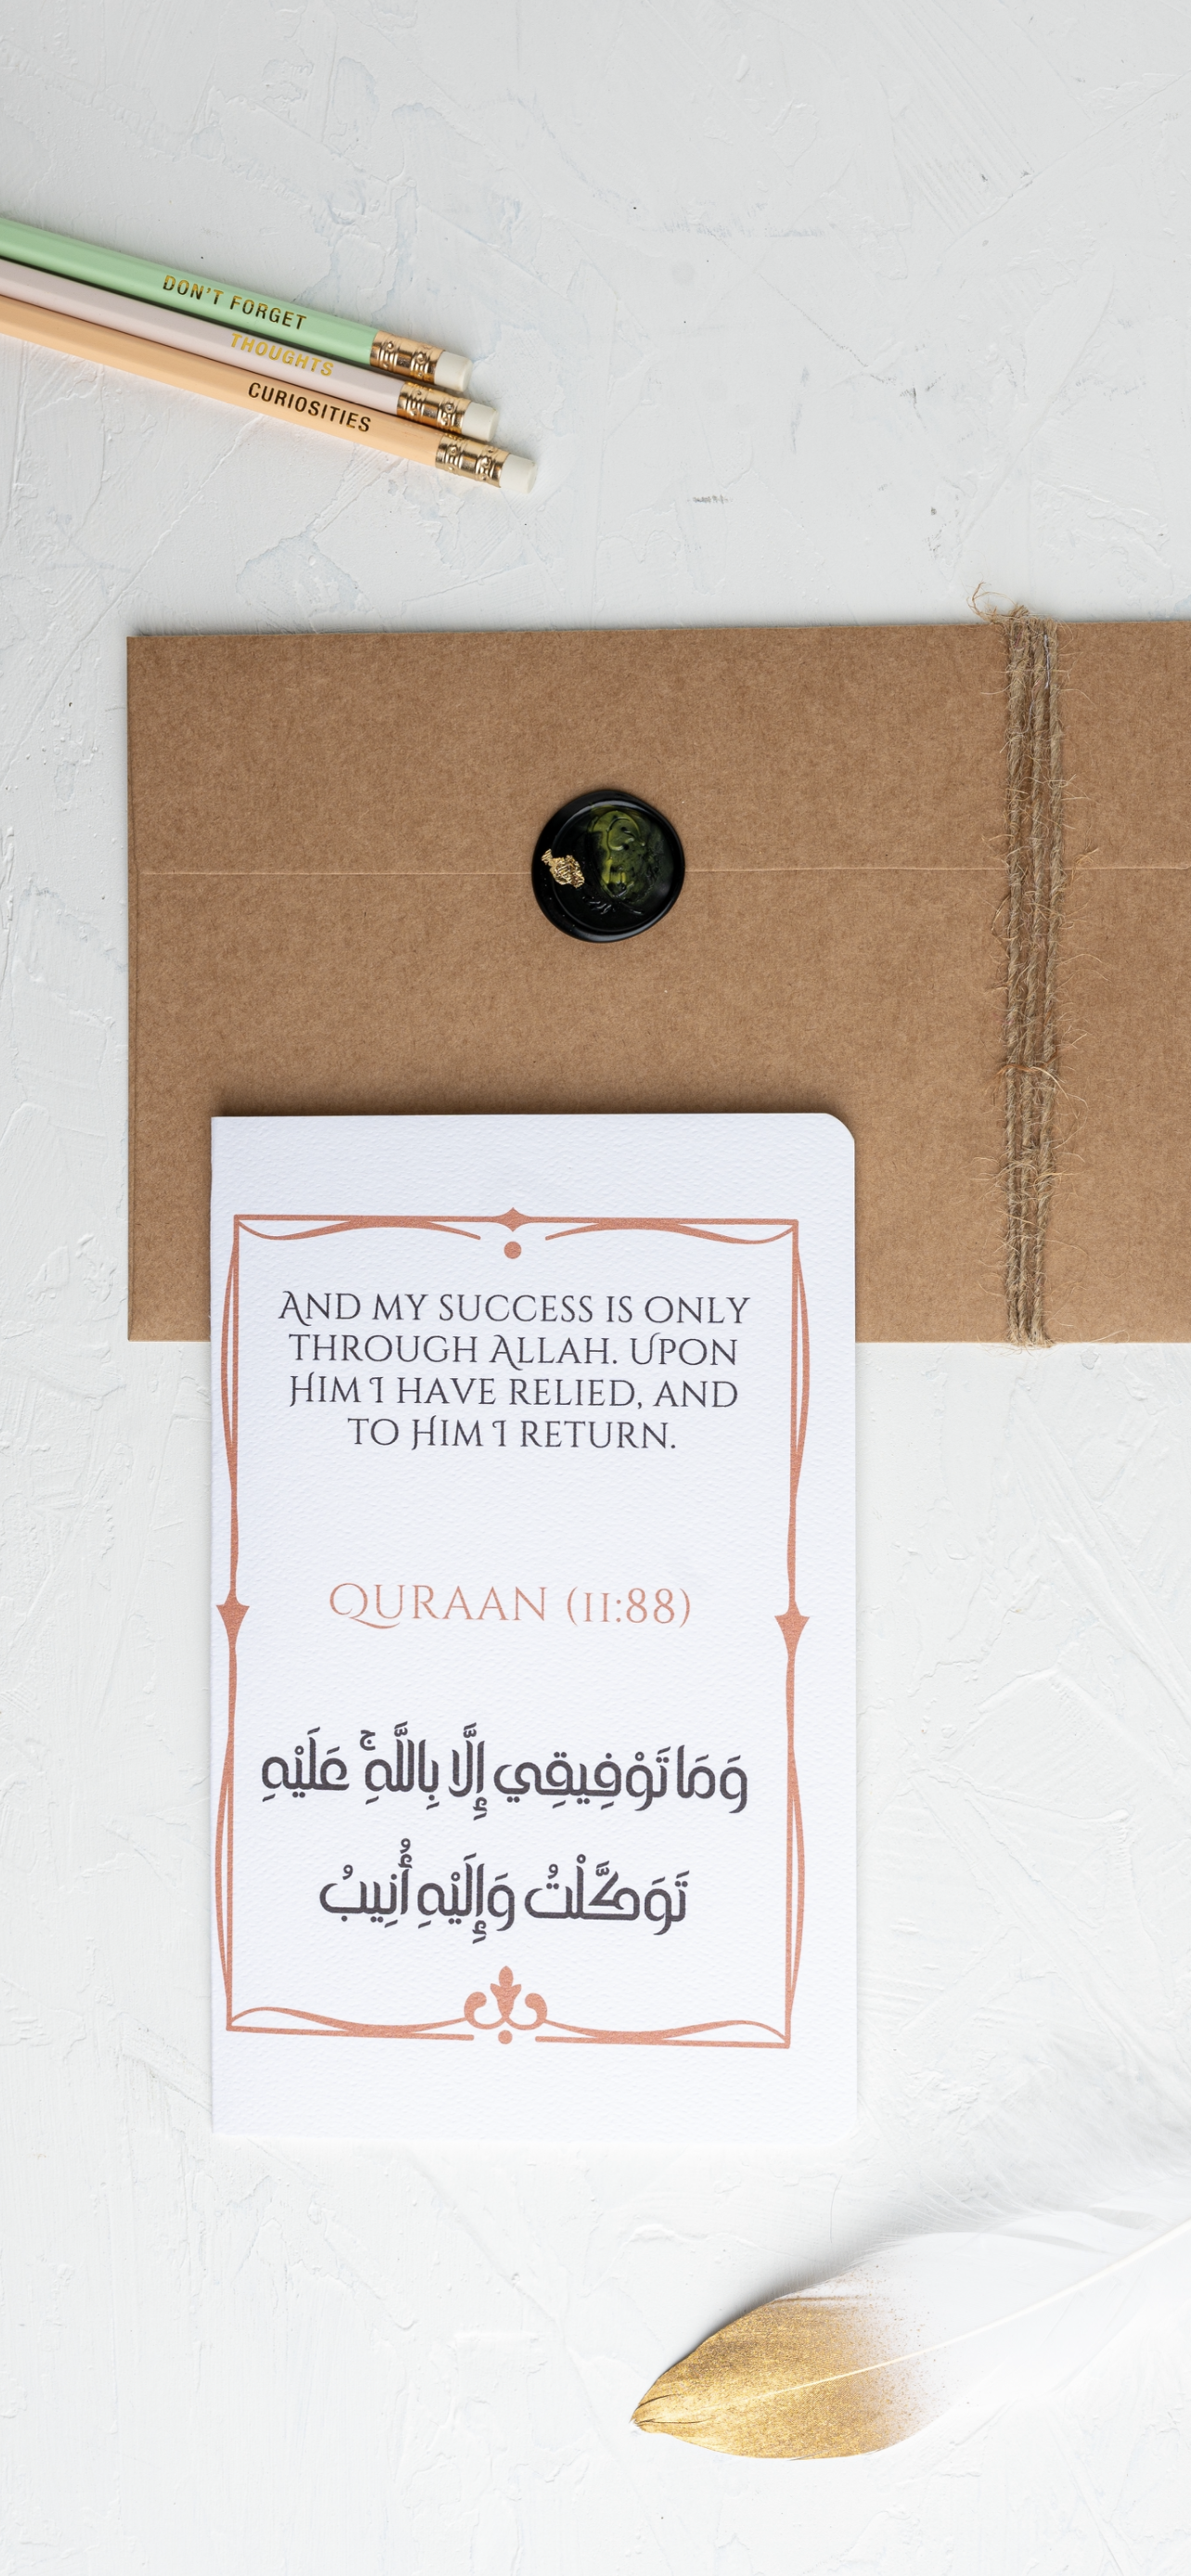 DON'T FORGET
THOUGHTS
CURIOSITIES
AND MY SUCCESS IS ONLY
THROUGH ALLAH. UPON
HIM I HAVE RELIED, AND
TO HIM I RETURN.
QURAAN (11:88)
وَمَا تَوْفِيقِي إِلَّا بِاللَّهِ ۚ عَلَيْهِ
تَوَكَّلْتُ وَإِلَيْهِ أُنِيبُ